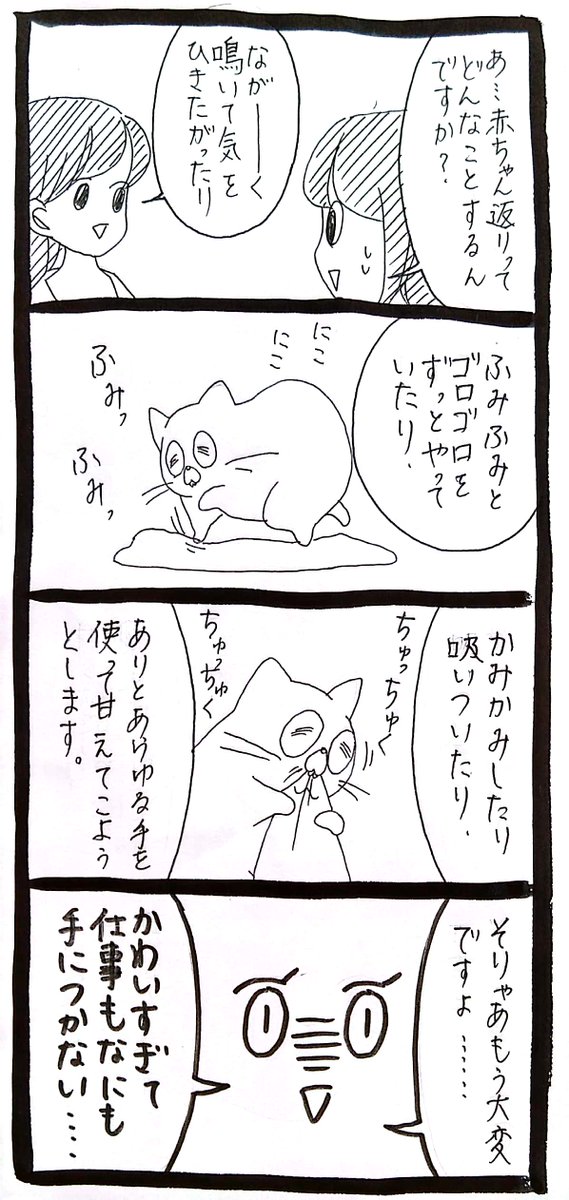 あ…赤ちゃん返りって
どんなことするん
ですか?
なが――く
鳴いて気を
ひきたがったり
ふみふみと
ゴロゴロを
ずっとやって
いたり、
にこ
にこ
ふみっ
ふみっ
かみかみしたり
吸いついたり、
ちゅっちゅく
ちゅっちゅく
ありとあらゆる手を
使って甘えてこよう
とします。
そりゃあもう大変
ですよ……
かわいすぎて
仕事もなにも
手につかない……